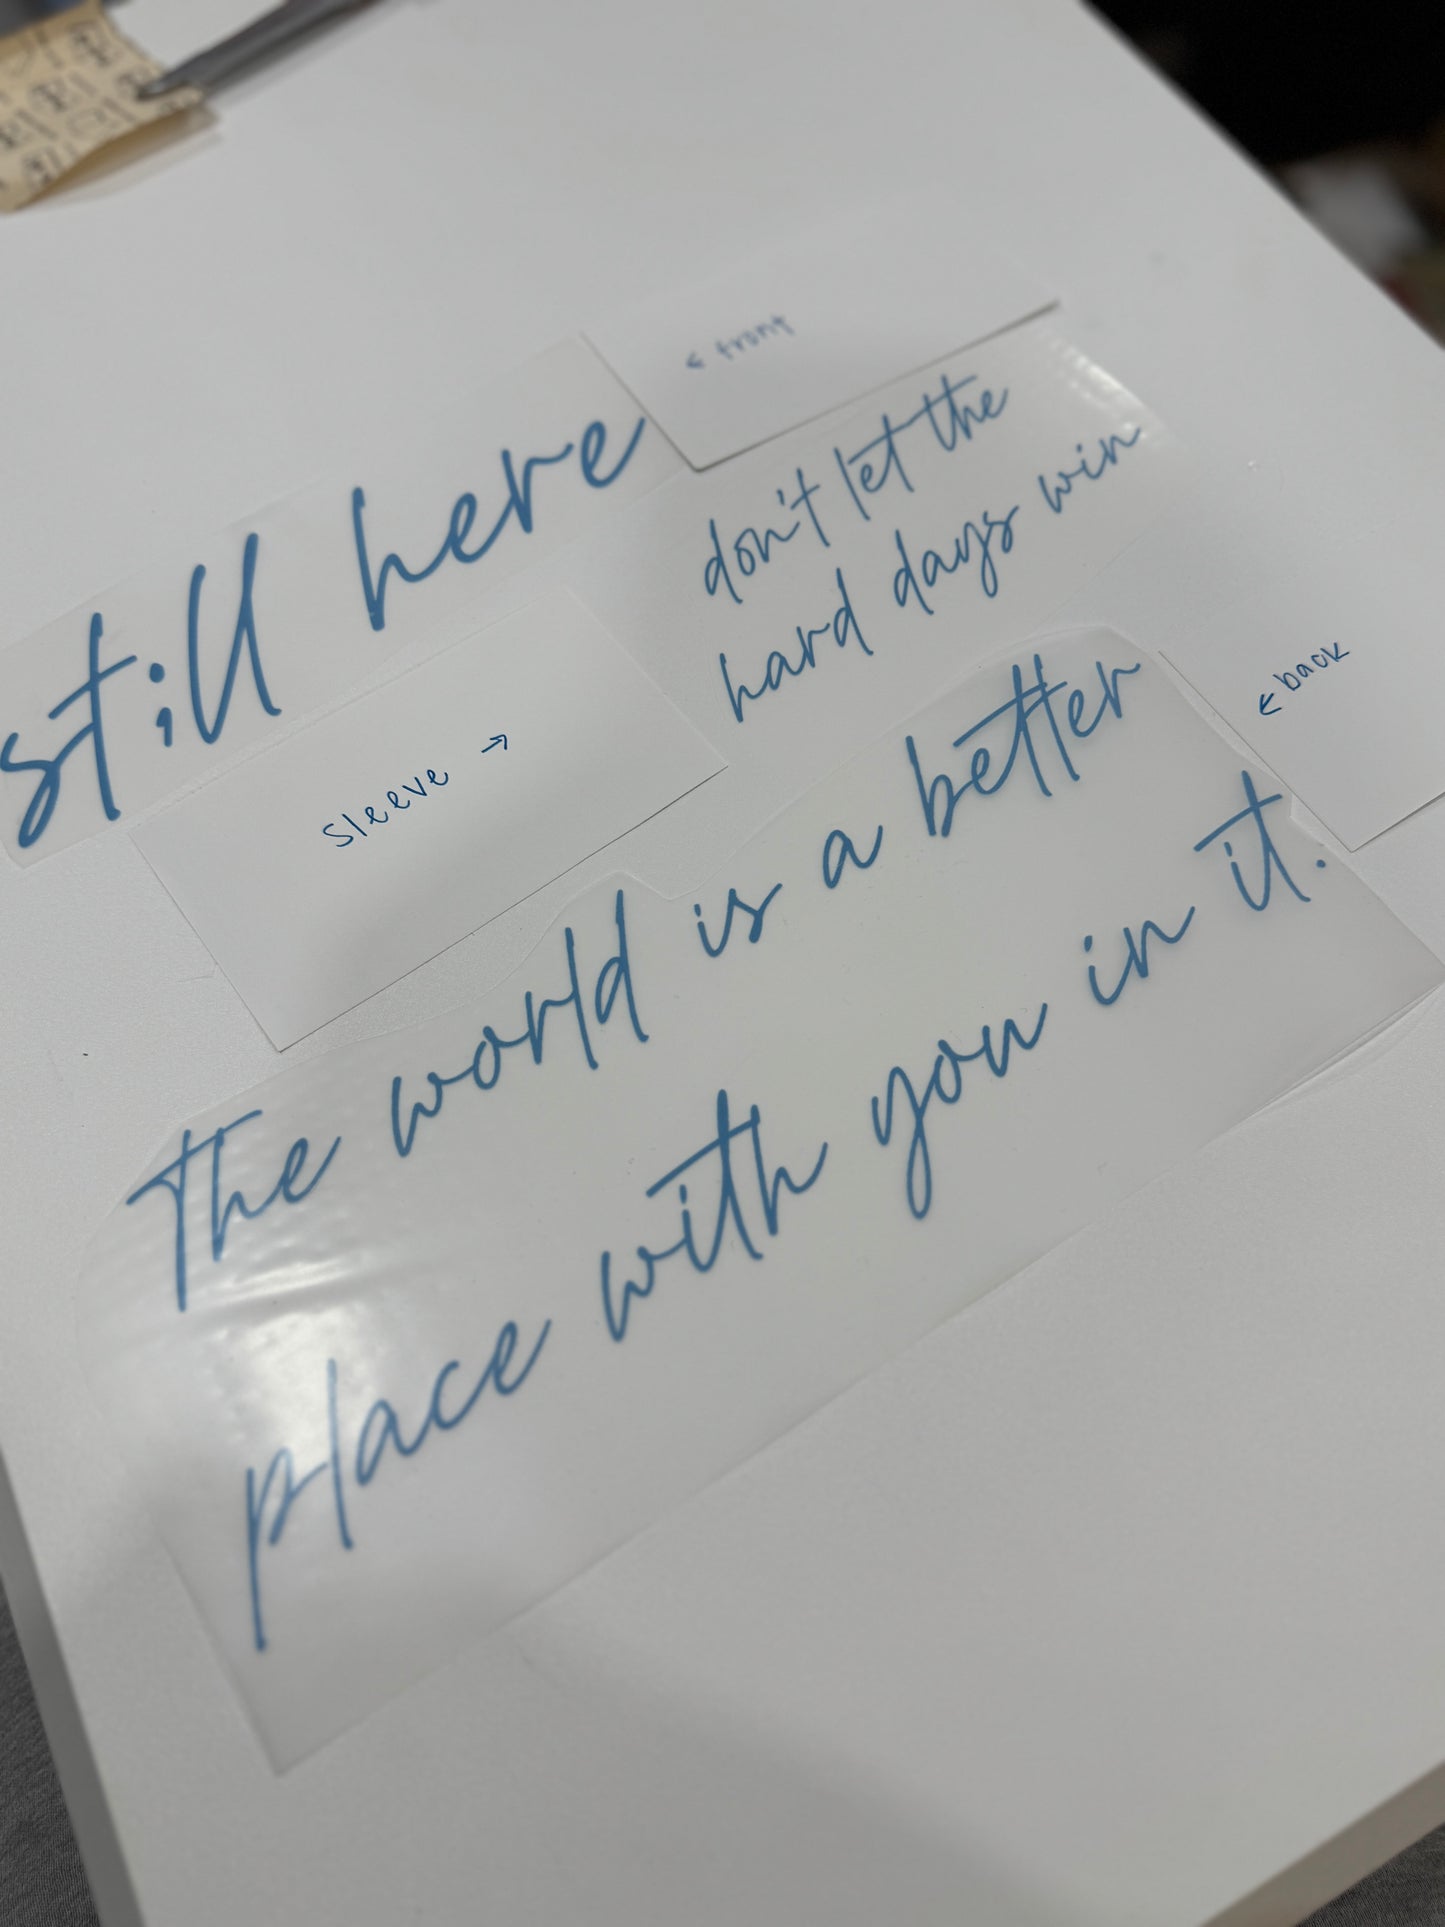 ← front
st;ll here
don't let the
hard days win
sleeve →
← back
The world is a better
place with you in it.